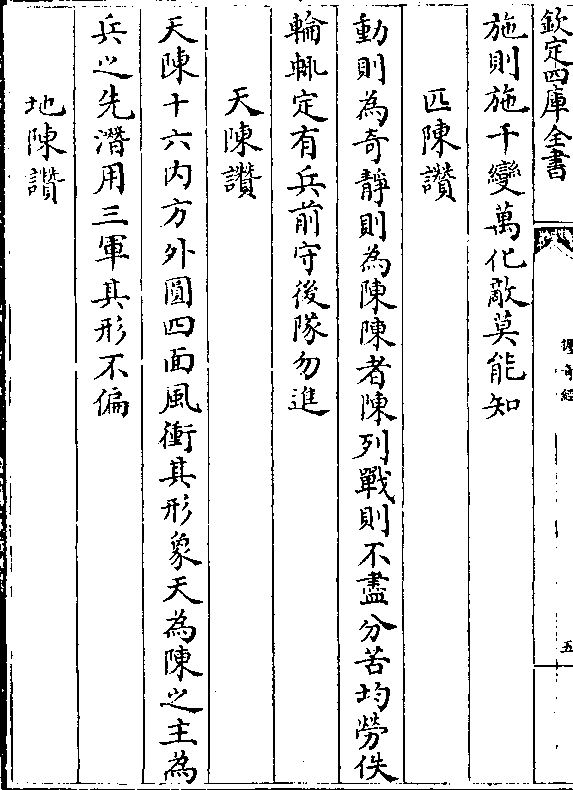 欽定四庫全書
握奇經
五
施則施千變萬化敵莫能知
匹陳讚
動則為奇靜則為陳陳者陳列戰則不盡分苦均勞佚
輪輒定有兵前守後隊勿進
天陳讚
天陳十六內方外圓四面風衝其形象天為陳之主為
兵之先潛用三軍其形不偏
地陳讚